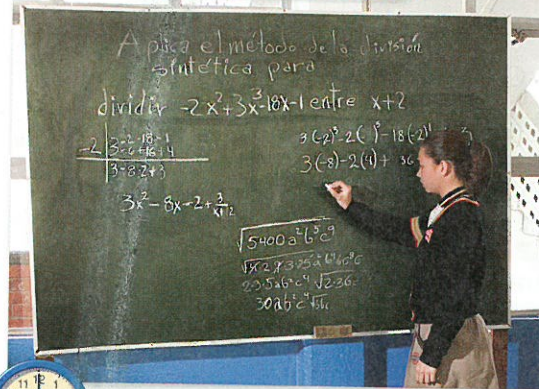 Aplica el método de la división
sintética para
dividir -2x²+3x³-18x-1 entre x+2
-2 | 3 -2 -18 -1
-6 +16 +4
3 -8 -2 +3
3x² - 8x - 2 + 3/x+2
3(-2)³-2( )²-18(-2)
3(-8)-2(4)+ 36
√5400a²b⁵c⁹
30ab²c⁴
11 12 1